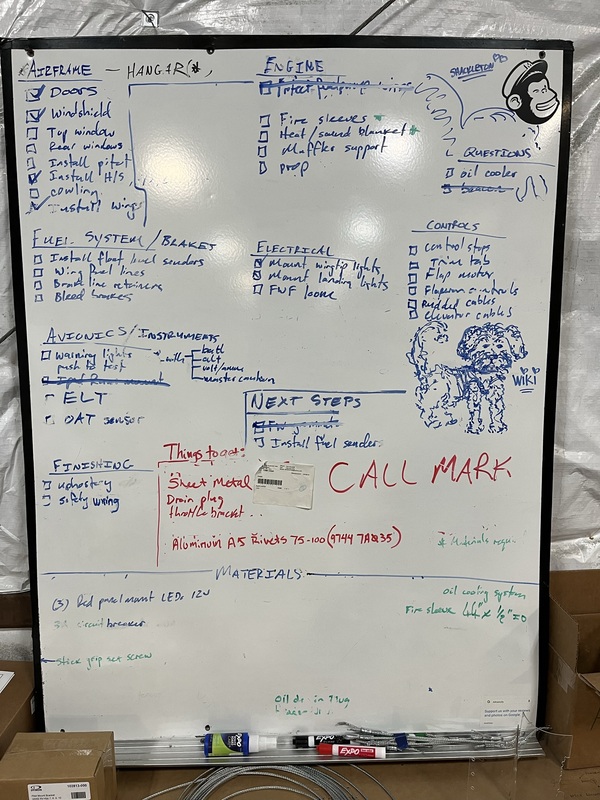 AIRFRAME — HANGAR(*)
Doors
Windshield
Top window
Rear windows
Install pitot
Install H/S
cowling
Install wings
ENGINE
Fire sleeves *
Heat/sound blanket *
Muffler support
prop
SHACKLETON
QUESTIONS
oil cooler
FUEL SYSTEM/BRAKES
Install float fuel senders
Wing fuel lines
Brake line retainers
Bleed brakes
ELECTRICAL
Mount wingtip lights
Mount landing lights
FWF loom
CONTROLS
Control stops
Trim tab
Flap motor
Flaperon controls
Rudder cables
elevator cables
AVIONICS/INSTRUMENTS
warning lights
push to test
alt
master caution
ELT
OAT sensor
WIKI
NEXT STEPS
Install fuel senders
FINISHING
upholstery
safety wiring
Things to get:
Sheet Metal
Drain plug
throttle bracket
CALL MARK
Aluminum A5 Rivets 75-100 (97447A035)
* Materials
MATERIALS
(3) Red panel mount LEDs 12v
circuit breaker
stick grip set screw
Oil cooling system
Fire sleeve
Oil drain Plug
EXPO
EXPO